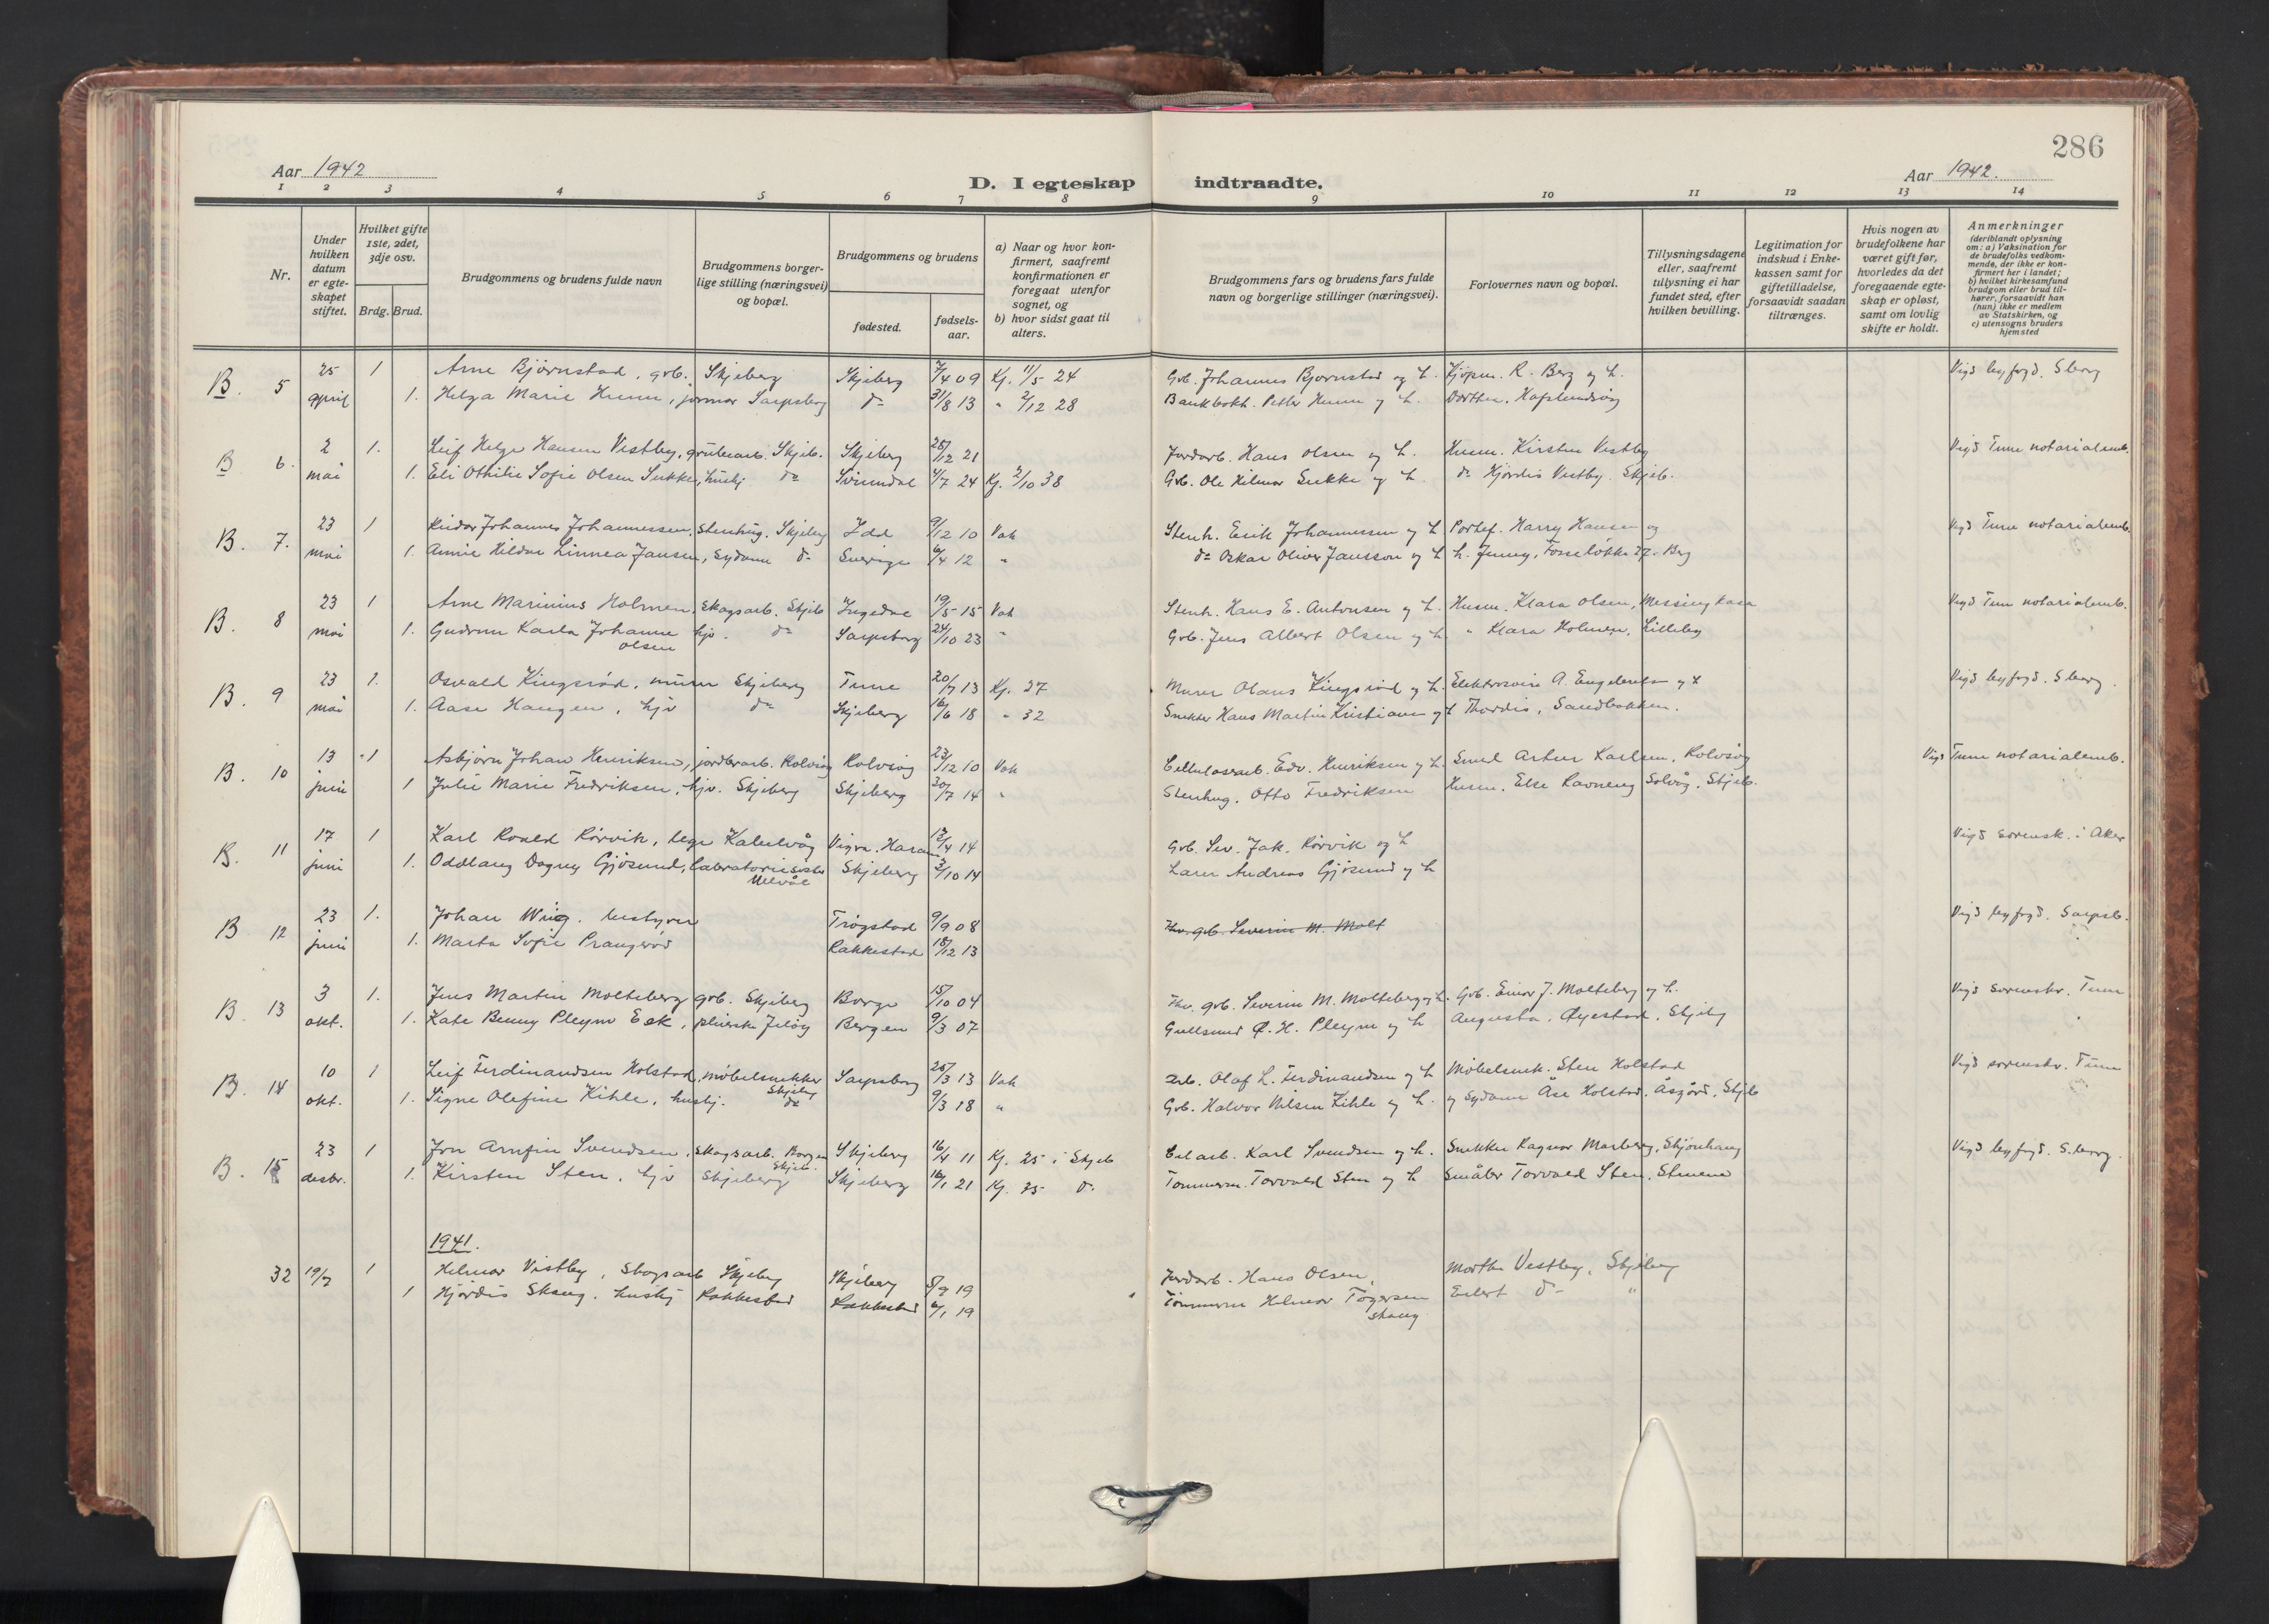 286
Aar 1942
Aar 1942.
D. I egteskap indtraadte.
1 2 3 4 5 6 7 8 9 10 11 12 13 14
Nr.
Under hvilken datum er egteskapet stiftet.
Hvilket gifte 1ste, 2det, 3dje osv.
Brdg. Brud.
Brudgommens og brudens fulde navn
Brudgommens borgerlige stilling (næringsvei) og bopæl.
Brudgommens og brudens
fødested.
fødselsaar.
a) Naar og hvor konfirmert, saafremt konfirmationen er foregaat utenfor sognet, og
b) hvor sidst gaat til alters.
Brudgommens fars og brudens fars fulde navn og borgerlige stillinger (næringsvei).
Forlovernes navn og bopæl.
Tillysningsdagene eller, saafremt tillysning ei har fundet sted, efter hvilken bevilling.
Legitimation for indskud i Enkekassen samt for giftetilladelse, forsaavidt saadan tiltrænges.
Hvis nogen av brudefolkene har været gift før, hvorledes da det foregaaende egteskap er opløst, samt om lovlig skifte er holdt.
Anmerkninger
(deriblandt oplysning om: a) Vaksination for de brudefolks vedkommende, der ikke er konfirmert her i landet; b) hvilket kirkesamfund brudgom eller brud tilhører, forsaavidt han (hun) ikke er medlem av Statskirken, og c) utensogns bruders hjemsted
B. 5 25 april 1 Arne Bjørnstad, grb. Skjeberg Skjeberg 7/4 09 Kf. 11/5 24 Grb. Johannes Bjørnstad og h. Kjøpm. R. Berg og h. Vigd byfogd. Sborg
1. Helga Marie Hunn, Sarpsborg do 31/8 13 " 2/12 28 Bankbokh. Petter Hunn og h. Dorthea, Hafslundsøy
B 6. 2 mai 1. Leif Helge Hansen Vestby, grubearb. Skjeb. Skjeberg 28/12 21 Jordarb. Hans Olsen og h. Husm. Kirsten Vestby Vigd Tune notarialemb.
1. Eli Othilie Sofie Olsen Sukke, hushj do Svinndal 4/7 24 Kf. 2/10 38 Grb. Ole Hilmar Sukke og h. do Hjørdis Vestby. Skjeb.
B. 7. 23 mai 1 Reidar Johannes Johannessen, stenhug. Skjeberg Idd 9/12 10 Vak Stenh. Erik Johannessen og h Portef. Harry Hansen og Vigd Tune notarialemb.
1. Annie Hildur Linnea Jansen, sydame do Sverige 6/4 12 " do Oskar Oliver Jansson og h h. Jenny, Fosseløkka 27. Berg
B. 8 23 mai 1 Arne Marinius Holmen, skogsarb. Skjeb Ingedal 19/5 15 Vak Stenh. Hans E. Antonsen og h. Husm. Klara Olsen, Vigd Tune notarialemb.
1. Gudrun Karla Johanne Olsen hjv. do Sarpsborg 24/10 23 " Grb. Jens Albert Olsen og h " Klara Holmen, Lilleby
B. 9 23 mai 1. Osvald Kingsrød, murer Skjeberg Tune 20/7 13 Kf. 27 Murer Olaus Kingsrød og h. A. Engebretsen og h Vigd byfogd. Sborg.
1. Aase Haugen, hjv do Skjeberg 16/6 18 " 32 Snekker Hans Martin Kristiansen og h Thordis, Sandbakken.
B. 10 13 juni 1 Asbjørn Johan Henriksen, jordbrarb. Rolvsøy Rolvsøy 23/12 10 Vak Cellulosearb. Edv. Henriksen og h. Emil Artur Karlsen, Rolvsøy Vigd Tune notarialemb.
1 Julie Marie Fredriksen, hjv. Skjeberg Skjeberg 30/7 14 " Stenhug. Otto Fredriksen Husm. Else Ravneng Solvåg, Skjeb.
B. 11 17 juni 1 Karl Roald Rørvik, lege Kabelvåg Vigra. Haram 12/4 14 Grb. Sev. Jak. Rørvik og h Vigd sorensk. i Aker
1. Oddlaug Dagny Gjøsund, labratoriesøster Ullevål Skjeberg 3/10 14 Lærer Andreas Gjøsund og h
B 12 23 juni 1. Johan Wiig. bestyrer Trøgstad 9/9 08 Fhv. grb. Severin M. Molt Vigd byfogd. Sarpsb.
1. Marta Sofie Prangerød Rakkestad 18/12 13
B. 13 3 okt. 1. Jens Martin Molteberg grb. Skjeberg Borge 15/10 04 Fhv. grb. Severin M. Molteberg og h. Grb. Einar J. Molteberg og h. Vigd sorenskr. Tune
1. Kate Benny Pleym Eek, pleierske Jeløy Bergen 9/3 07 Gullsmed H. Pleym og h Augusta, Øyestad, Skjebg
B. 14 10 okt. 1 Leif Ferdinandsen Holstad, møbelsnekker Skjeberg Sarpsborg 25/3 13 Vak Arb. Olaf L. Ferdinandsen og h Møbelsnek. Sten Holstad Vigd sorenskr. Tune
1. Signe Olefine Kihle, hushj. do 9/3 18 " Grb. Halvor Nilsen Kihle og h. og sydame Åse Holstad, Åsgård, Skjeb
B. 15 23 desbr. 1 Jon Arnfin Svendsen, skogsarb. Borgen Skjeb. Skjeberg 16/4 11 Kf. 25 i Skjeb Cel arb. Karl Svendsen og h. Snekker Ragnar Marberg, Skjønhaug Vigd byfogd. S.borg.
1. Kirsten Sten, hjv Skjeberg Skjeberg 16/1 21 Kf. 35 do Tømmerm. Torvald Sten og h Småbr Torvald Sten, Stenene
1941.
32 19/7 1 Helmar Vestby, Skogsarb Skjeberg Skjeberg 5/9 19 Jordarb. Hans Olsen, Morthe Vestby, Skjeberg
1 Hjørdis Skaug, hushj Rakkestad Rakkestad 6/1 19 Tømmerm Helmar Togersen Skaug Eilert do "